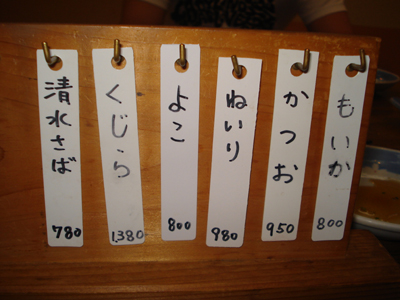 もいか
800
かつお
950
ねいり
980
よこ
800
くじら
1380
清水さば
780